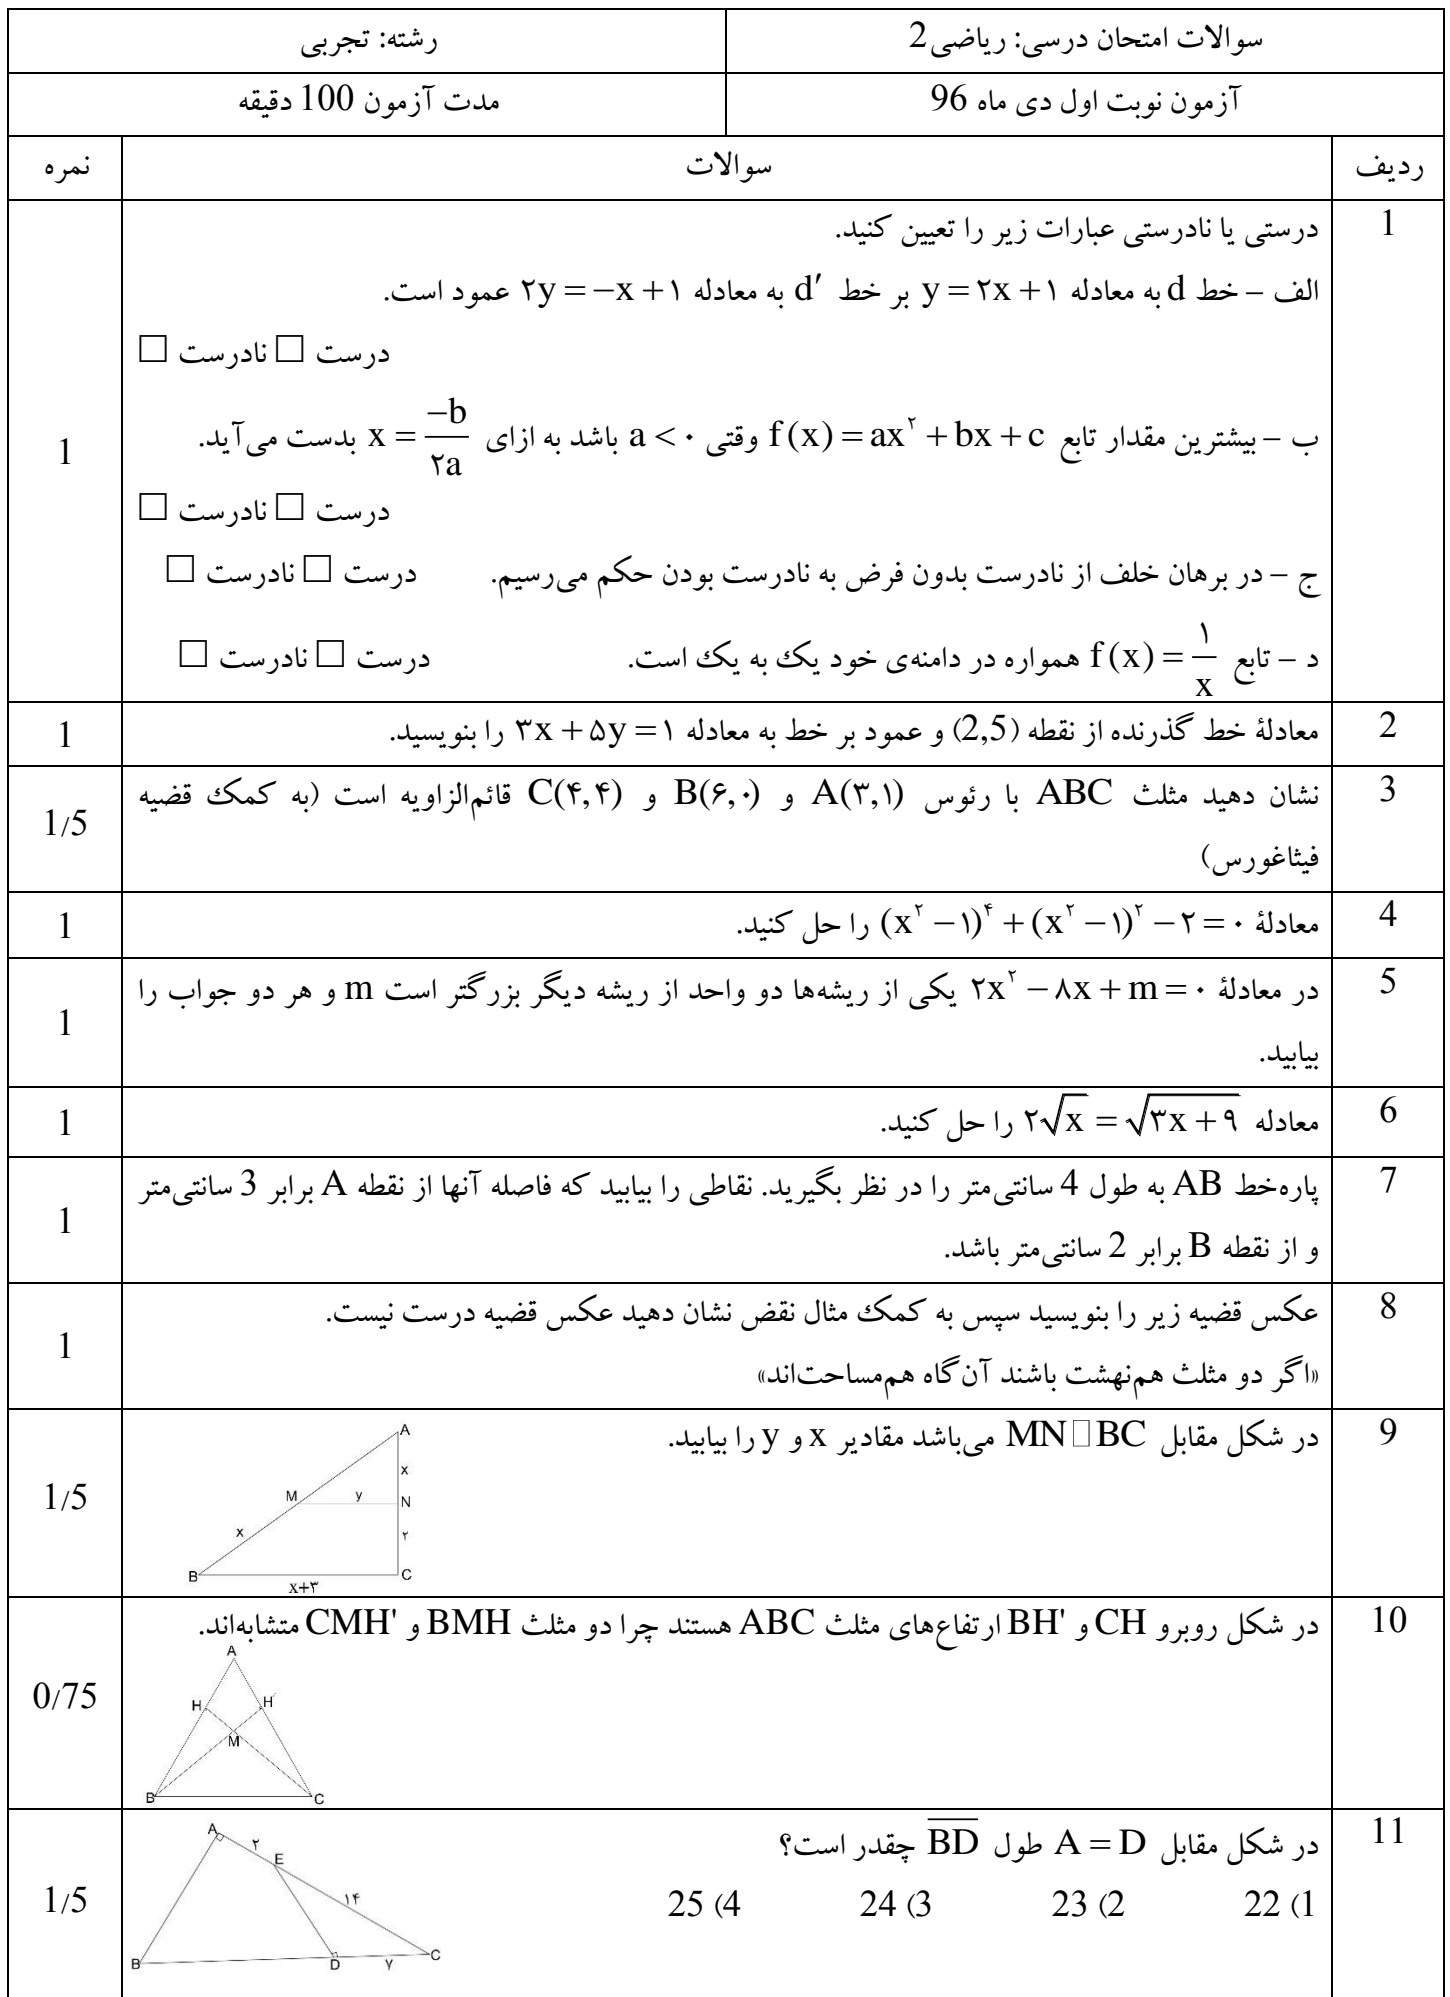 سوالات امتحان درسی: ریاضی2
رشته: تجربی
آزمون نوبت اول دی ماه 96
مدت آزمون 100 دقیقه
ردیف
سوالات
نمره
1
درستی یا نادرستی عبارات زیر را تعیین کنید.
الف – خط d به معادله y = ۲x + ۱ بر خط d′ به معادله ۲y = −x + ۱ عمود است.
درست □ نادرست □
ب – بیشترین مقدار تابع f(x) = ax² + bx + c وقتی a < ۰ باشد به ازای x = −b/۲a بدست می‌آید.
درست □ نادرست □
ج – در برهان خلف از نادرست بدون فرض به نادرست بودن حکم می‌رسیم. درست □ نادرست □
د – تابع f(x) = ۱/x همواره در دامنه‌ی خود یک به یک است. درست □ نادرست □
1
2
معادلهٔ خط گذرنده از نقطه (2,5) و عمود بر خط به معادله ۳x + ۵y = ۱ را بنویسید.
1
3
نشان دهید مثلث ABC با رئوس A(۳,۱) و B(۶,۰) و C(۴,۴) قائم‌الزاویه است (به کمک قضیه
فیثاغورس)
1/5
4
معادلهٔ (x² − ۱)⁴ + (x² − ۱)² − ۲ = ۰ را حل کنید.
1
5
در معادلهٔ ۲x² − ۸x + m = ۰ یکی از ریشه‌ها دو واحد از ریشه دیگر بزرگتر است m و هر دو جواب را
بیابید.
1
6
معادله ۲√x = √(۳x + ۹) را حل کنید.
1
7
پاره‌خط AB به طول 4 سانتی‌متر را در نظر بگیرید. نقاطی را بیابید که فاصله آنها از نقطه A برابر 3 سانتی‌متر
و از نقطه B برابر 2 سانتی‌متر باشد.
1
8
عکس قضیه زیر را بنویسید سپس به کمک مثال نقض نشان دهید عکس قضیه درست نیست.
«اگر دو مثلث هم‌نهشت باشند آن‌گاه هم‌مساحت‌اند»
1
9
در شکل مقابل MN□BC می‌باشد مقادیر x و y را بیابید.
A
x
M y N
x ۲
B C
x+۳
1/5
10
در شکل روبرو CH و BH' ارتفاع‌های مثلث ABC هستند چرا دو مثلث BMH و CMH' متشابه‌اند.
A
H H'
M
B C
0/75
11
در شکل مقابل A = D طول BD چقدر است؟
1) 22 2) 23 3) 24 4) 25
A ۲ E
۱۴
B D ۷ C
1/5